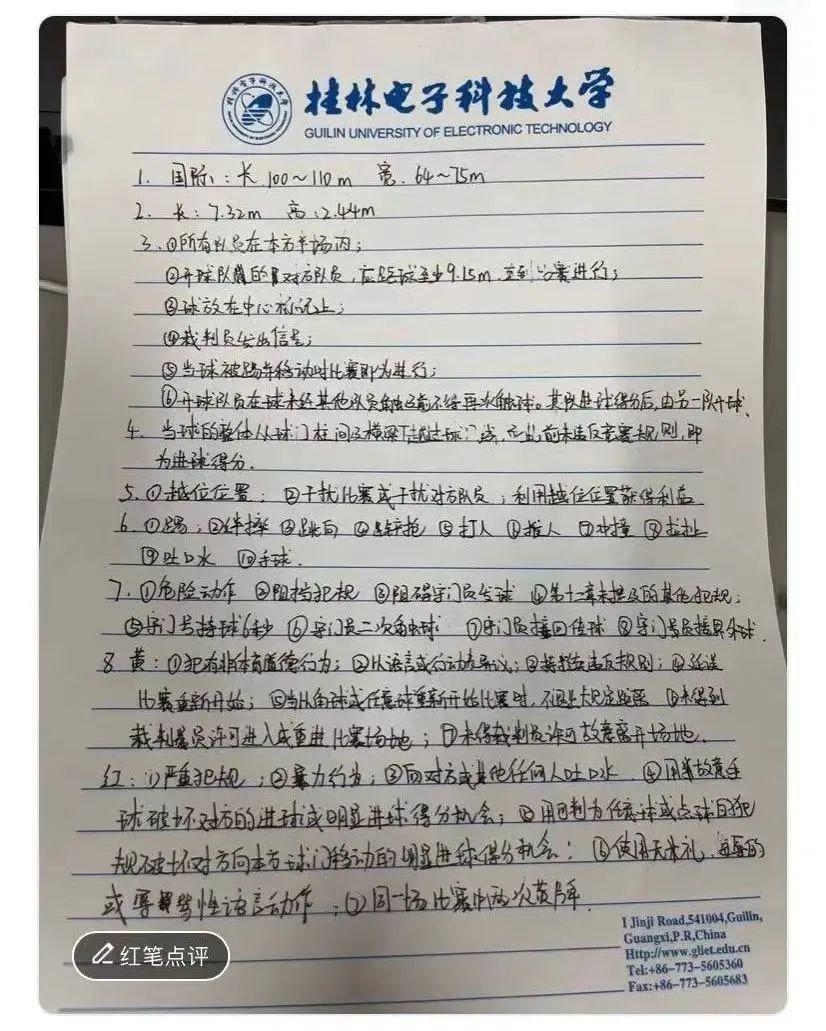 桂林电子科技大学
GUILIN UNIVERSITY OF ELECTRONIC TECHNOLOGY
1. 国际：长 100～110m 宽. 64～75m
2. 长：7.32m 高：2.44m
3. ①所有队员在本方半场内；
②开球队的对方队员，应距球至少9.15m，直到比赛进行；
③球放在中心标记上；
④裁判员发出信号；
⑤当球被踢并移动时比赛即为进行；
⑥开球队员在球未经其他队员触及前不得再次触球。某队进球得分后，由另一队开球.
4. 当球的整体从球门柱间及横梁下越过球门线，而此前未违反竞赛规则，即
为进球得分.
5. ①越位位置；②干扰比赛或干扰对方队员；利用越位位置获得利益
6. ①踢；②绊摔 ③跳向 ④铲抢 ⑤打人 ⑥推人 ⑦冲撞 ⑧拉扯
⑨吐口水 ⑩手球.
7. ①危险动作 ②阻挡犯规 ③阻碍守门员发球 ④第十二章未提及的其他犯规；
⑤守门员持球6秒 ⑥守门员二次触球 ⑦守门员接回传球 ⑧守门员接界外球.
8 黄：①犯有非体育道德行为；②以语言或行动表示异议；③持续违反规则；④延误
比赛重新开始；⑤当以角球或任意球重新开始比赛时，不退出规定距离 ⑥未得到
裁判员许可进入或重进比赛场地；⑦未得裁判员许可故意离开场地.
红：①严重犯规；②暴力行为；③向对方或其他任何人吐口水 ④用故意手
球破坏对方的进球或明显进球得分机会；⑤用可判为任意球或点球的犯
规破坏对方向本方球门移动的明显进球得分机会；⑥使用无礼，侮辱的
或辱骂性语言动作；⑦同一场比赛中两次黄牌
1 Jinji Road,541004,Guilin,
Guangxi,P.R,China
Http://www.gliet.edu.cn
Tel:+86-773-5605360
Fax:+86-773-5605683
红笔点评